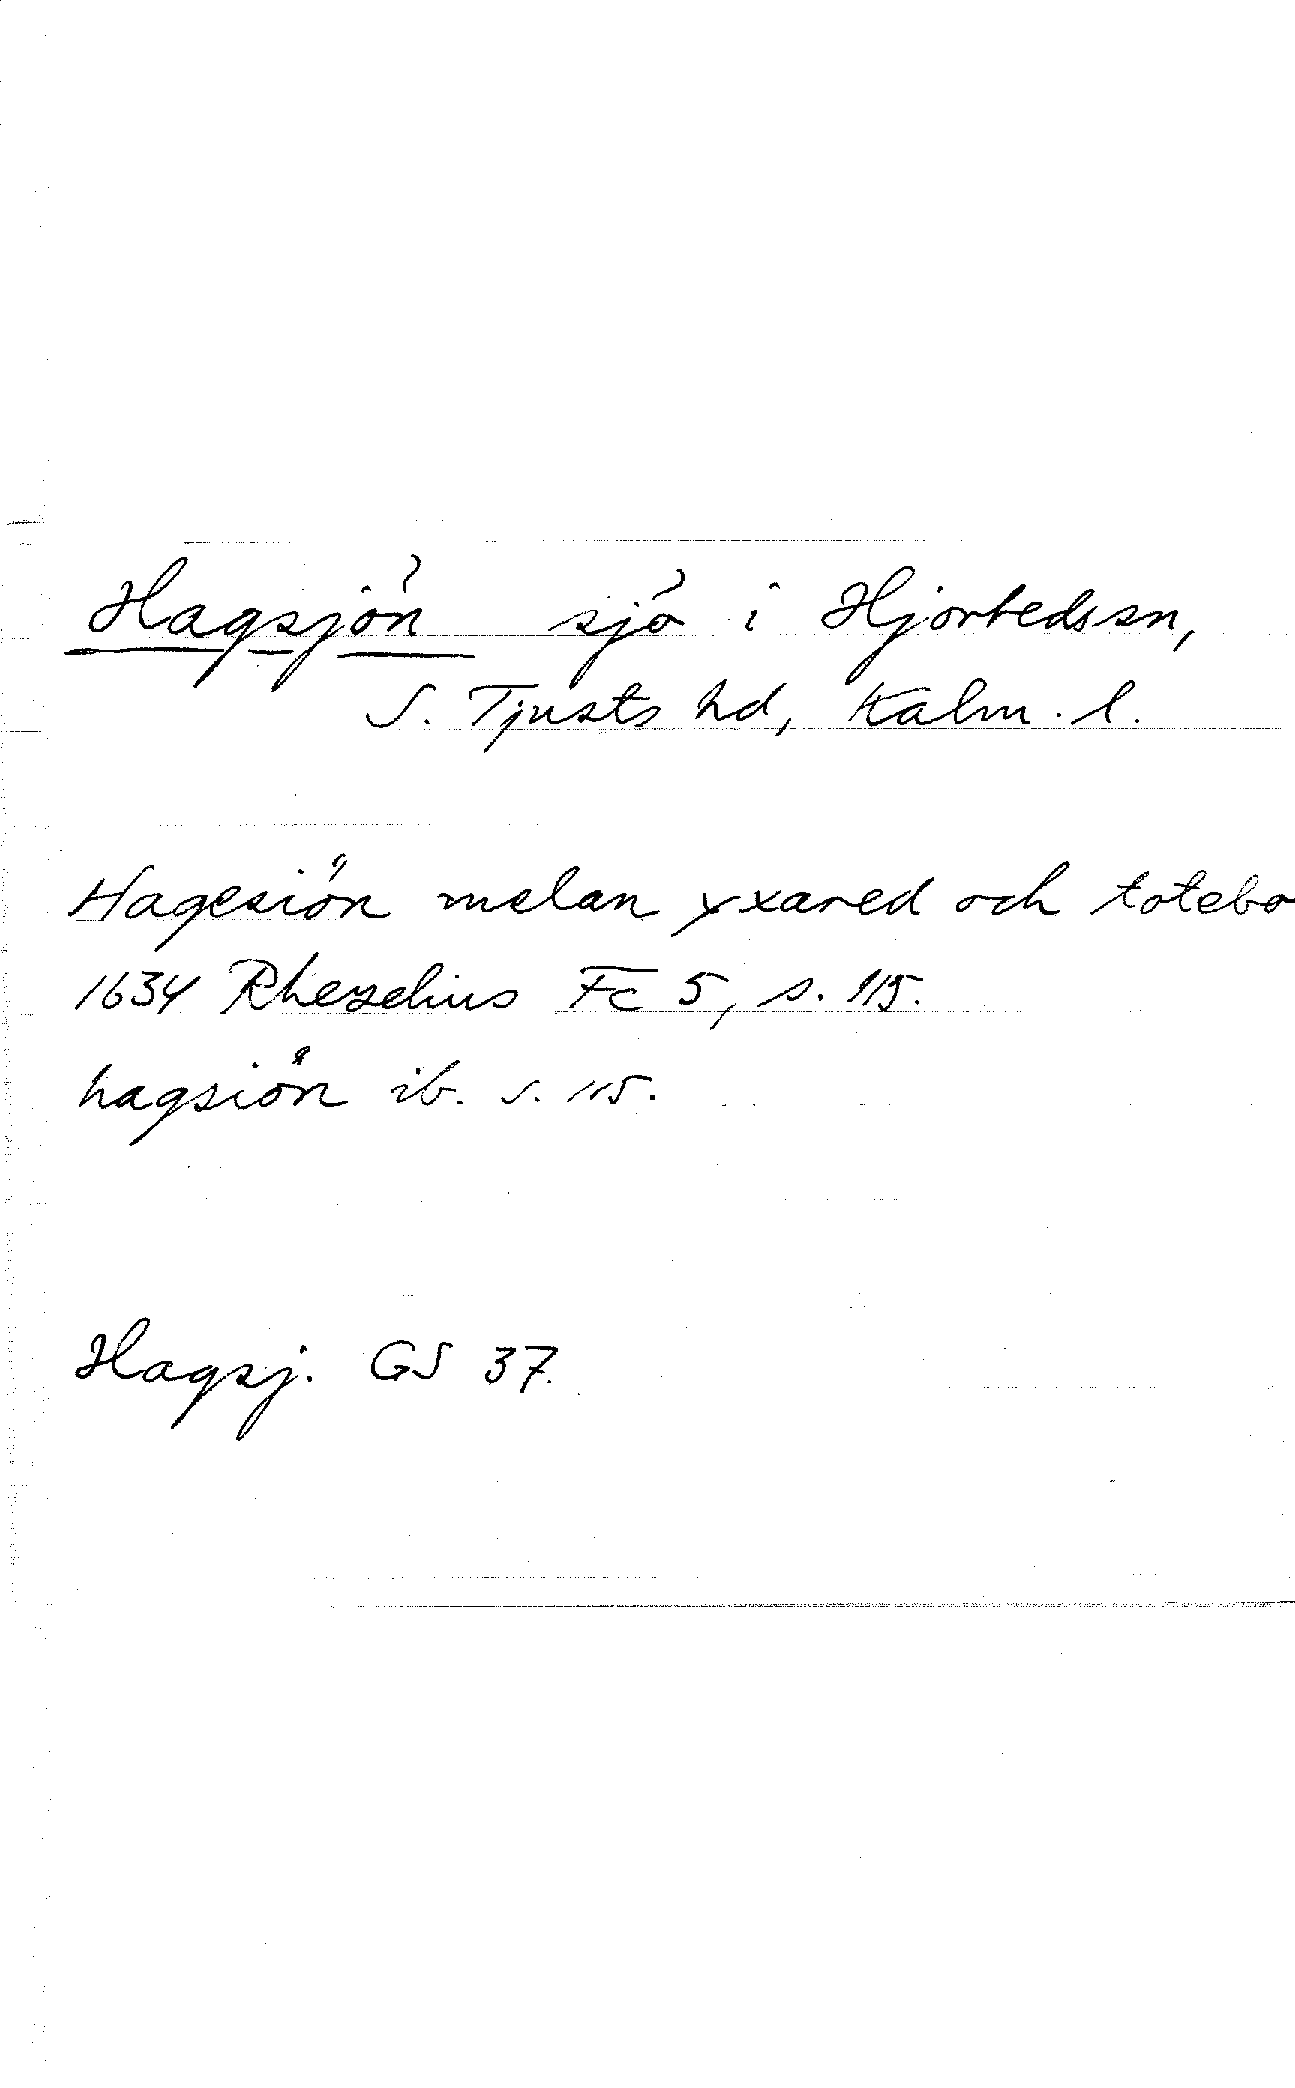 Hagsjön sjö i Hjorteds sn,
S. Tjusts hd, Kalm. l.
Hagesiön melan yxared och totebo
1634 Rhezelius Fc 5, s. 115.
hagsiön ib. s. 115.
Hagsj. GS 37.